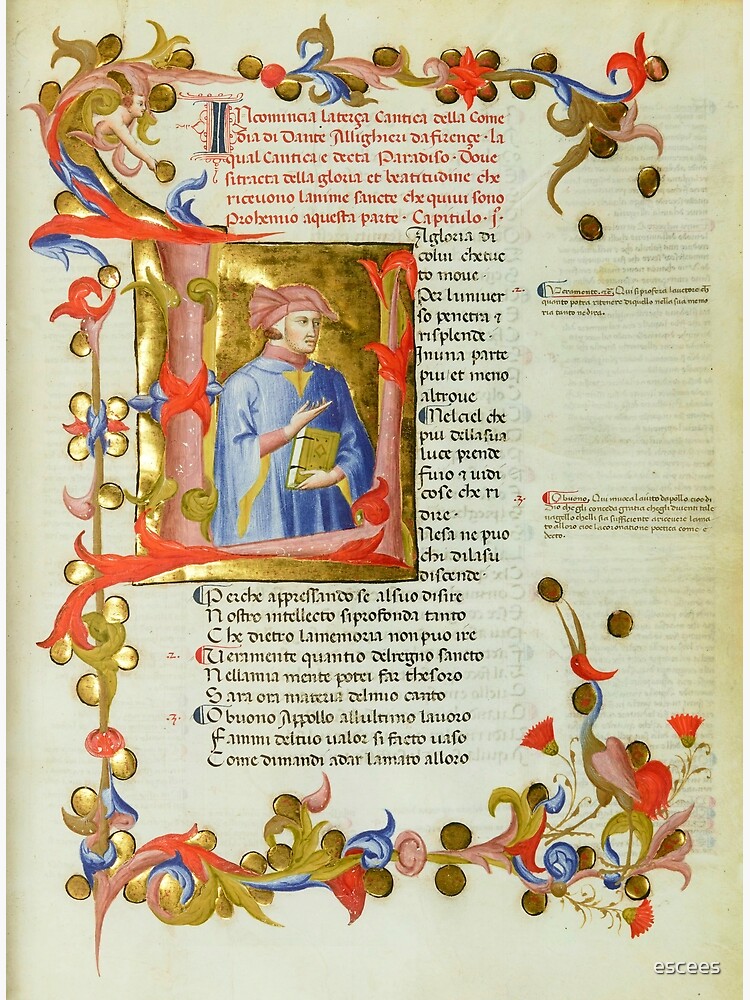 Incomincia la terça Cantica della Come
dia di Dante Allighieri da firençe · la
qual Cantica e decta Paradiso · Doue
si tracta della gloria et beatitudine che
riceuono lanime sancte che quiui sono
Prohemio a questa parte · Capitulo · j ·
La gloria di
colui che tuc
to moue ·
Per luniuer
so penetra ⁊
risplende ·
In una parte
piu et meno
altroue
Nel ciel che
piu della sua
luce prende
fu io ⁊ uidi
cose che ri
dire ·
Ne sa ne puo
chi di lasu
discende ·
Perche appressando se al suo disire
Nostro intellecto si profonda tanto
Che dietro la memoria non puo ire
·2· Ueramente quantio del regno sancto
Nella mia mente potei far thesoro
Sara ora materia del mio canto
·3· O buono Appollo allultimo lauoro
Fammi del tuo ualor si facto uaso
Come dimandi a dar lamato alloro
·2· Ueramente. Qui si profera lauctore
quanto potra ritenere di quello nella sua memo
ria tanto ne dira.
·3· O buono, Qui inuoca laiuto dapollo cioe di
Dio che gli conceda gratia chegli diuenti tale
uagello chelli sia sufficiente a riceuere lama
to alloro cioe la coronatione poetica come e
decto.
escees